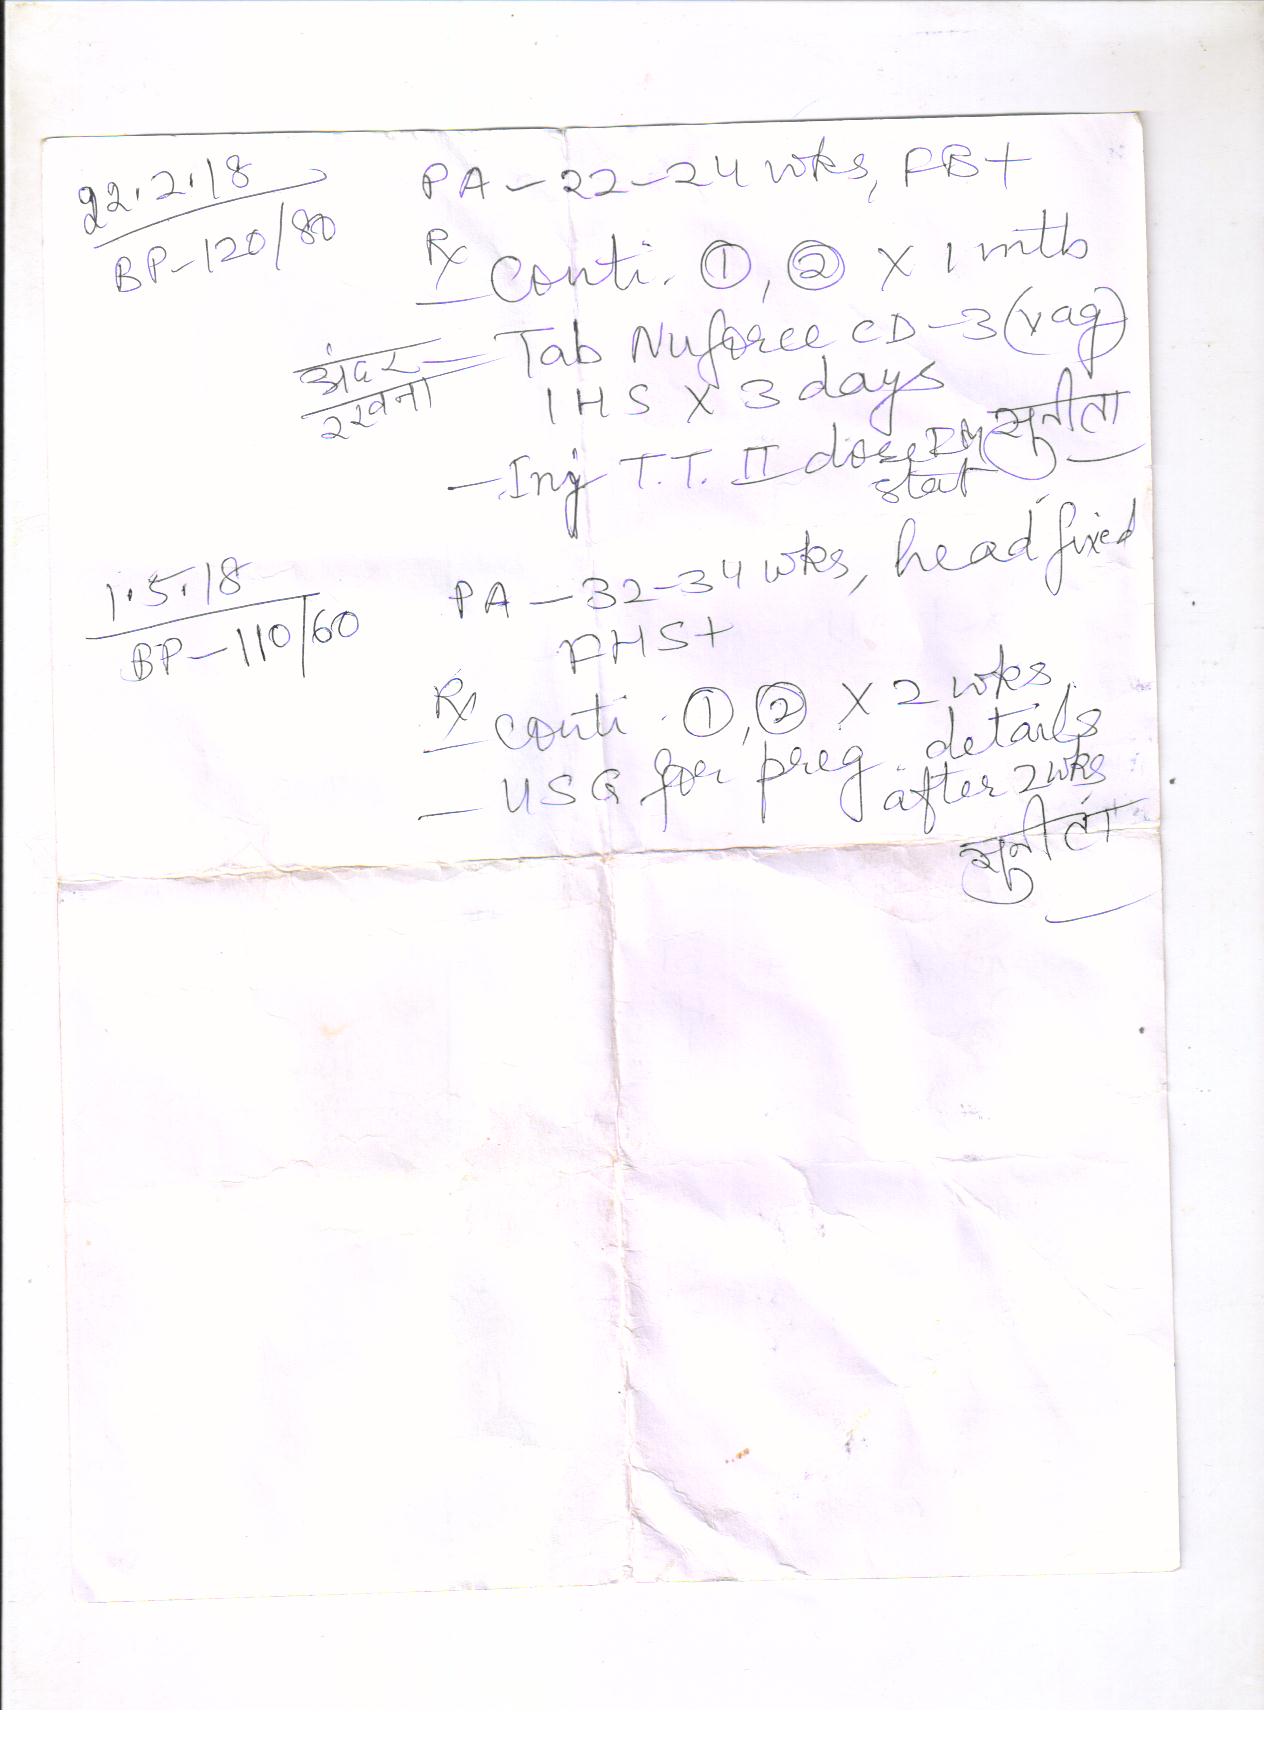 22.2.18
BP-120/80
PA - 22-24 wks, FB+
Rx Conti. ①, ② X 1 mth
अंदर रखना
- Tab Nuforce CD-3 (vag)
1 HS X 3 days
- Inj T.T. II dose IM stat
सुनीता
1.5.18
BP-110/60
PA - 32-34 wks, head fixed
FHS+
Rx Conti. ①, ② X 2 wks.
- USG for preg. details
after 2 wks
सुनीता